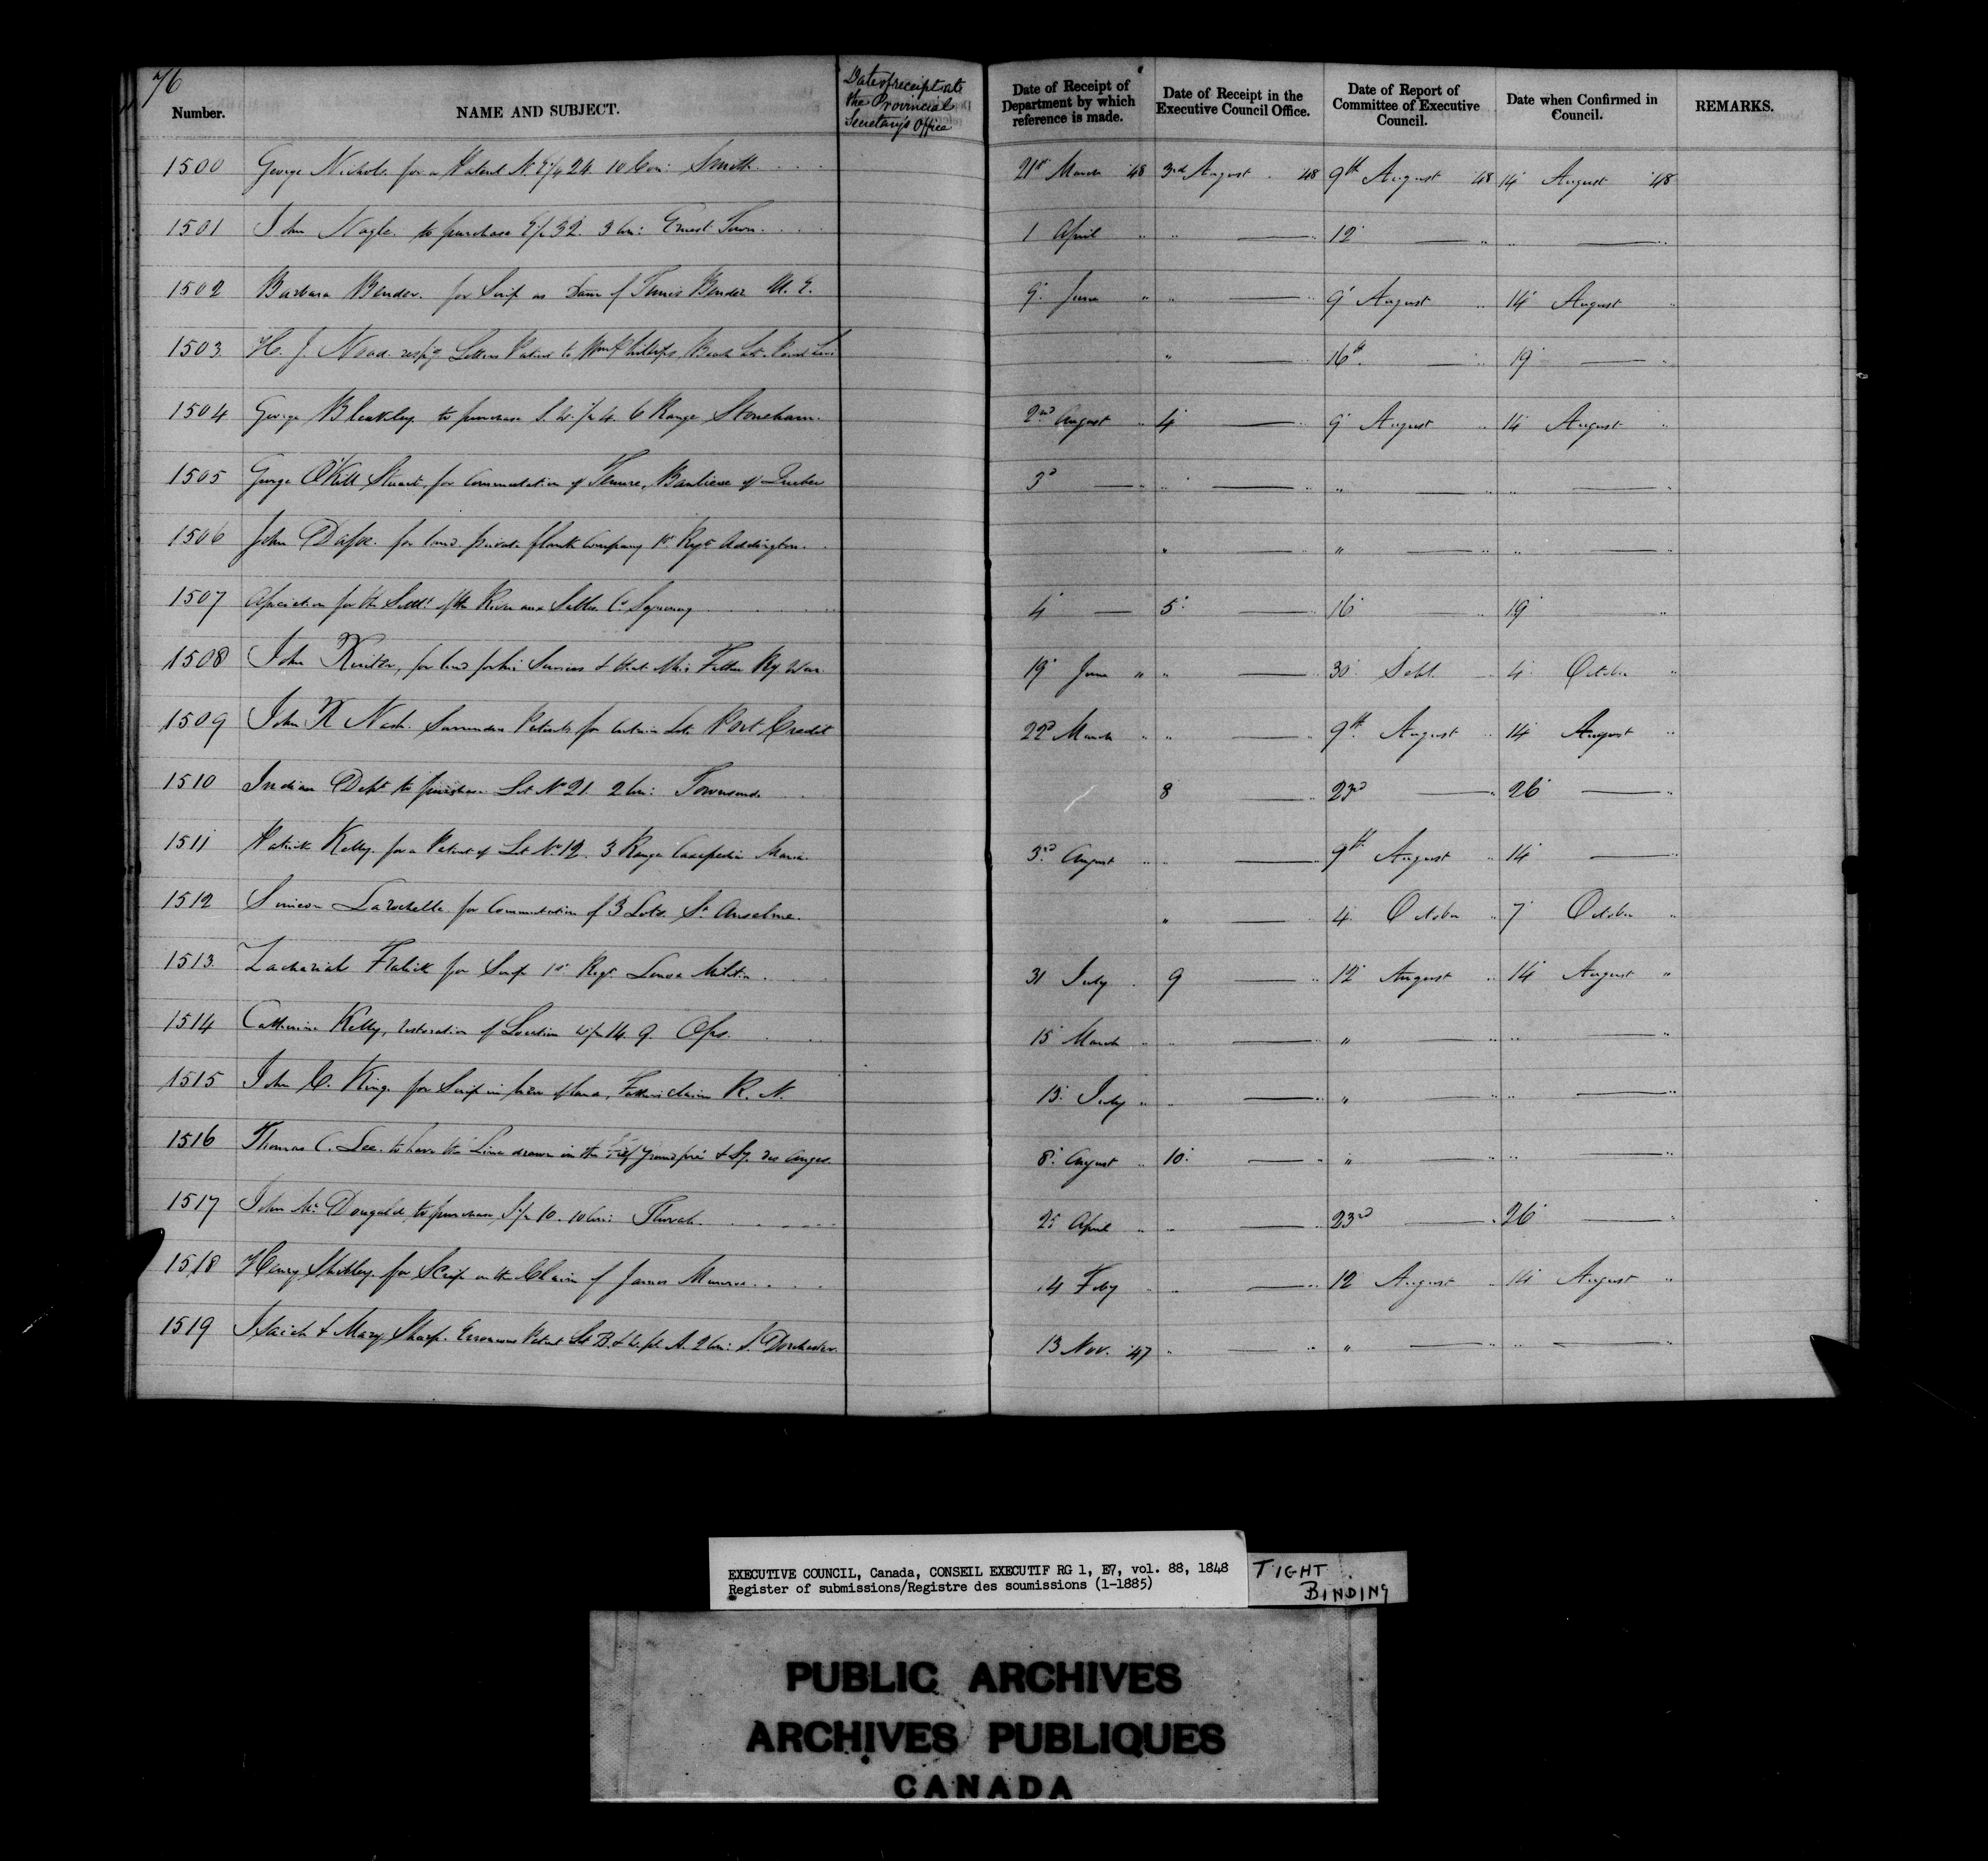 76
Number. NAME AND SUBJECT. Date of receipt at the Provincial Secretary's Office Date of Receipt of Department by which reference is made. Date of Receipt in the Executive Council Office. Date of Report of Committee of Executive Council. Date when Confirmed in Council. REMARKS.
1500 George Nichols for a Patent N E/4 24 10 Con: Smith 21st March 48 3rd August 48 9th August 48 14 August 48
1501 John Nagle to purchase E/2 32. 3 Con: Ernest Town 1 April " " — " 12 — " " — "
1502 Barbara Bender. for Scrip as Daur of Bender U. E. 9 June " " — " 9 August " 14 August "
1503 H. J. Noad resp'g Letters Patent to Wm Phillips Beach Lot " — " 16th — " 19 — "
1504 George Bleakley to purchase S. W. 1/2 4. 6 Range Stoneham. 2nd August " 4 — " 9 August " 14 August "
1505 George O'Kill Stuart, for Commutation of Tenure, Banlieue of Quebec 3d — " " — " " — " " — "
1506 John for land private Company 1st Regt Addington. " — " " — " " — "
1507 Association for the Settlt of the River aux Sables Co Saguenay 4 — 5 — " 16 — " 19 — "
1508 John for land for his Services & that of his Father Ry. War 19 June " " — " 30 Sept. — 4 October "
1509 John R Nash Surrenders Patents for certain Lots Port Credit 22d March " " — " 9th August " 14 August "
1510 Indian Dept to purchase Lot No 21 2 Con: Townsend 8 — " 23rd — " 26 — "
1511 Patrick Kelly for a Patent of Lot No 12. 3 Range Cascapedia Maria 3rd August " " — " 9th August " 14 — "
1512 Simeon Larochelle for Commutation of 3 Lots St Anselme. " — " 4 October " 7 October "
1513 Zachariah Fralick for Scrip 1st Regt Lenox Militia 31 July " 9 — " 12 August " 14 August "
1514 Catherine Kelly, restoration of Location W/2 14. 9. Ops. 15 March " " — " " — " " — "
1515 John C. King for Scrip in lieu of land, Father's claim R. N. 13 July " " — " " — " " — "
1516 Thomas C. Lee. to have the Line drawn in the Fief Grandpré & Sy. des Anges. 8 August " 10 — " " — " " — "
1517 John McDougald, to purchase S/2 10. 10 Con: Thorah 25 April " " — " 23rd — " 26 — "
1518 Henry Shibley for Scrip on the Claim of James Munroe 14 Feby " " — " 12 August " 14 August "
1519 Isaiah & Mary Sharp. Erroneous Patent Lot B. & W. pt. A. 2 Con: S. Dorchester 13 Nov. 47 " " " — " " — "
EXECUTIVE COUNCIL, Canada, CONSEIL EXECUTIF RG 1, E7, vol. 88, 1848
Register of submissions/Registre des soumissions (1-1885)
TIGHT
BINDING
PUBLIC ARCHIVES
ARCHIVES PUBLIQUES
CANADA